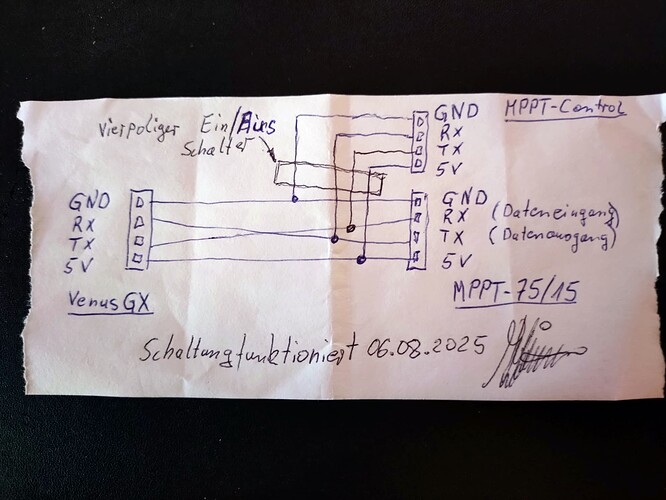 Vierpoliger Ein/Aus
Schalter
GND MPPT-Control
Rx
Tx
5V
GND
Rx
Tx
5V
Venus GX
GND
Rx (Dateneingang)
Tx (Datenausgang)
5V
MPPT-75/15
Schaltung funktioniert 06.08.2025